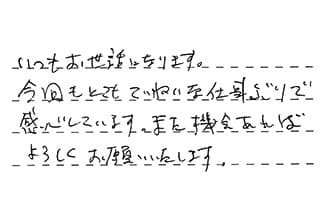 いつもお世話になります。
今回もとてもていねいな仕事ぶりで
感心しています。また機会あれば
よろしくお願いいたします。